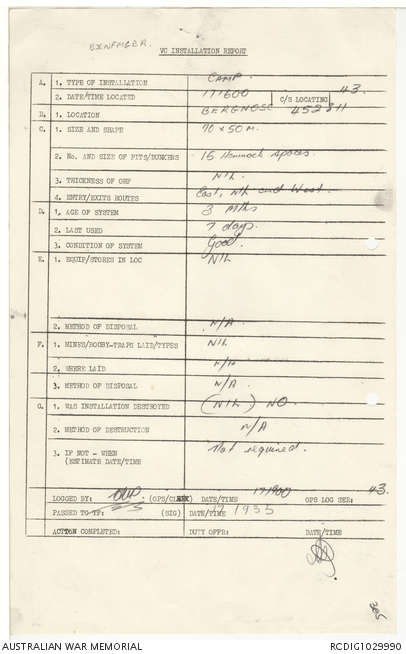 VC INSTALLATION REPORT
A. 1. TYPE OF INSTALLATION CAMP.
2. DATE/TIME LOCATED 171600 C/S LOCATING 43.
B. 1. LOCATION 452811
C. 1. SIZE AND SHAPE 70 x 50 M.
2. No. AND SIZE OF PITS/BUNKERS 15 Hammock spaces.
3. THICKNESS OF OHP Nth.
4. ENTRY/EXITS ROUTES East, Nth and West.
D. 1. AGE OF SYSTEM 3 Mths
2. LAST USED 7 days.
3. CONDITION OF SYSTEM Good.
E. 1. EQUIP/STORES IN LOC Nth
2. METHOD OF DISPOSAL N/A.
F. 1. MINES/BOOBY-TRAPS LAID/TYPES Nth
2. WHERE LAID N/A
3. METHOD OF DISPOSAL N/A.
G. 1. WAS INSTALLATION DESTROYED (Nth) NO.
2. METHOD OF DESTRUCTION N/A
3. IF NOT - WHEN Not required.
(ESTIMATE DATE/TIME
LOGGED BY: (OPS/CLERK) DATE/TIME 171900 OPS LOG SER: 43.
PASSED TO TF: (SIG) DATE/TIME 17 1935
ACTION COMPLETED: DUTY OFFR: DATE/TIME
AUSTRALIAN WAR MEMORIAL
RCDIG1029990